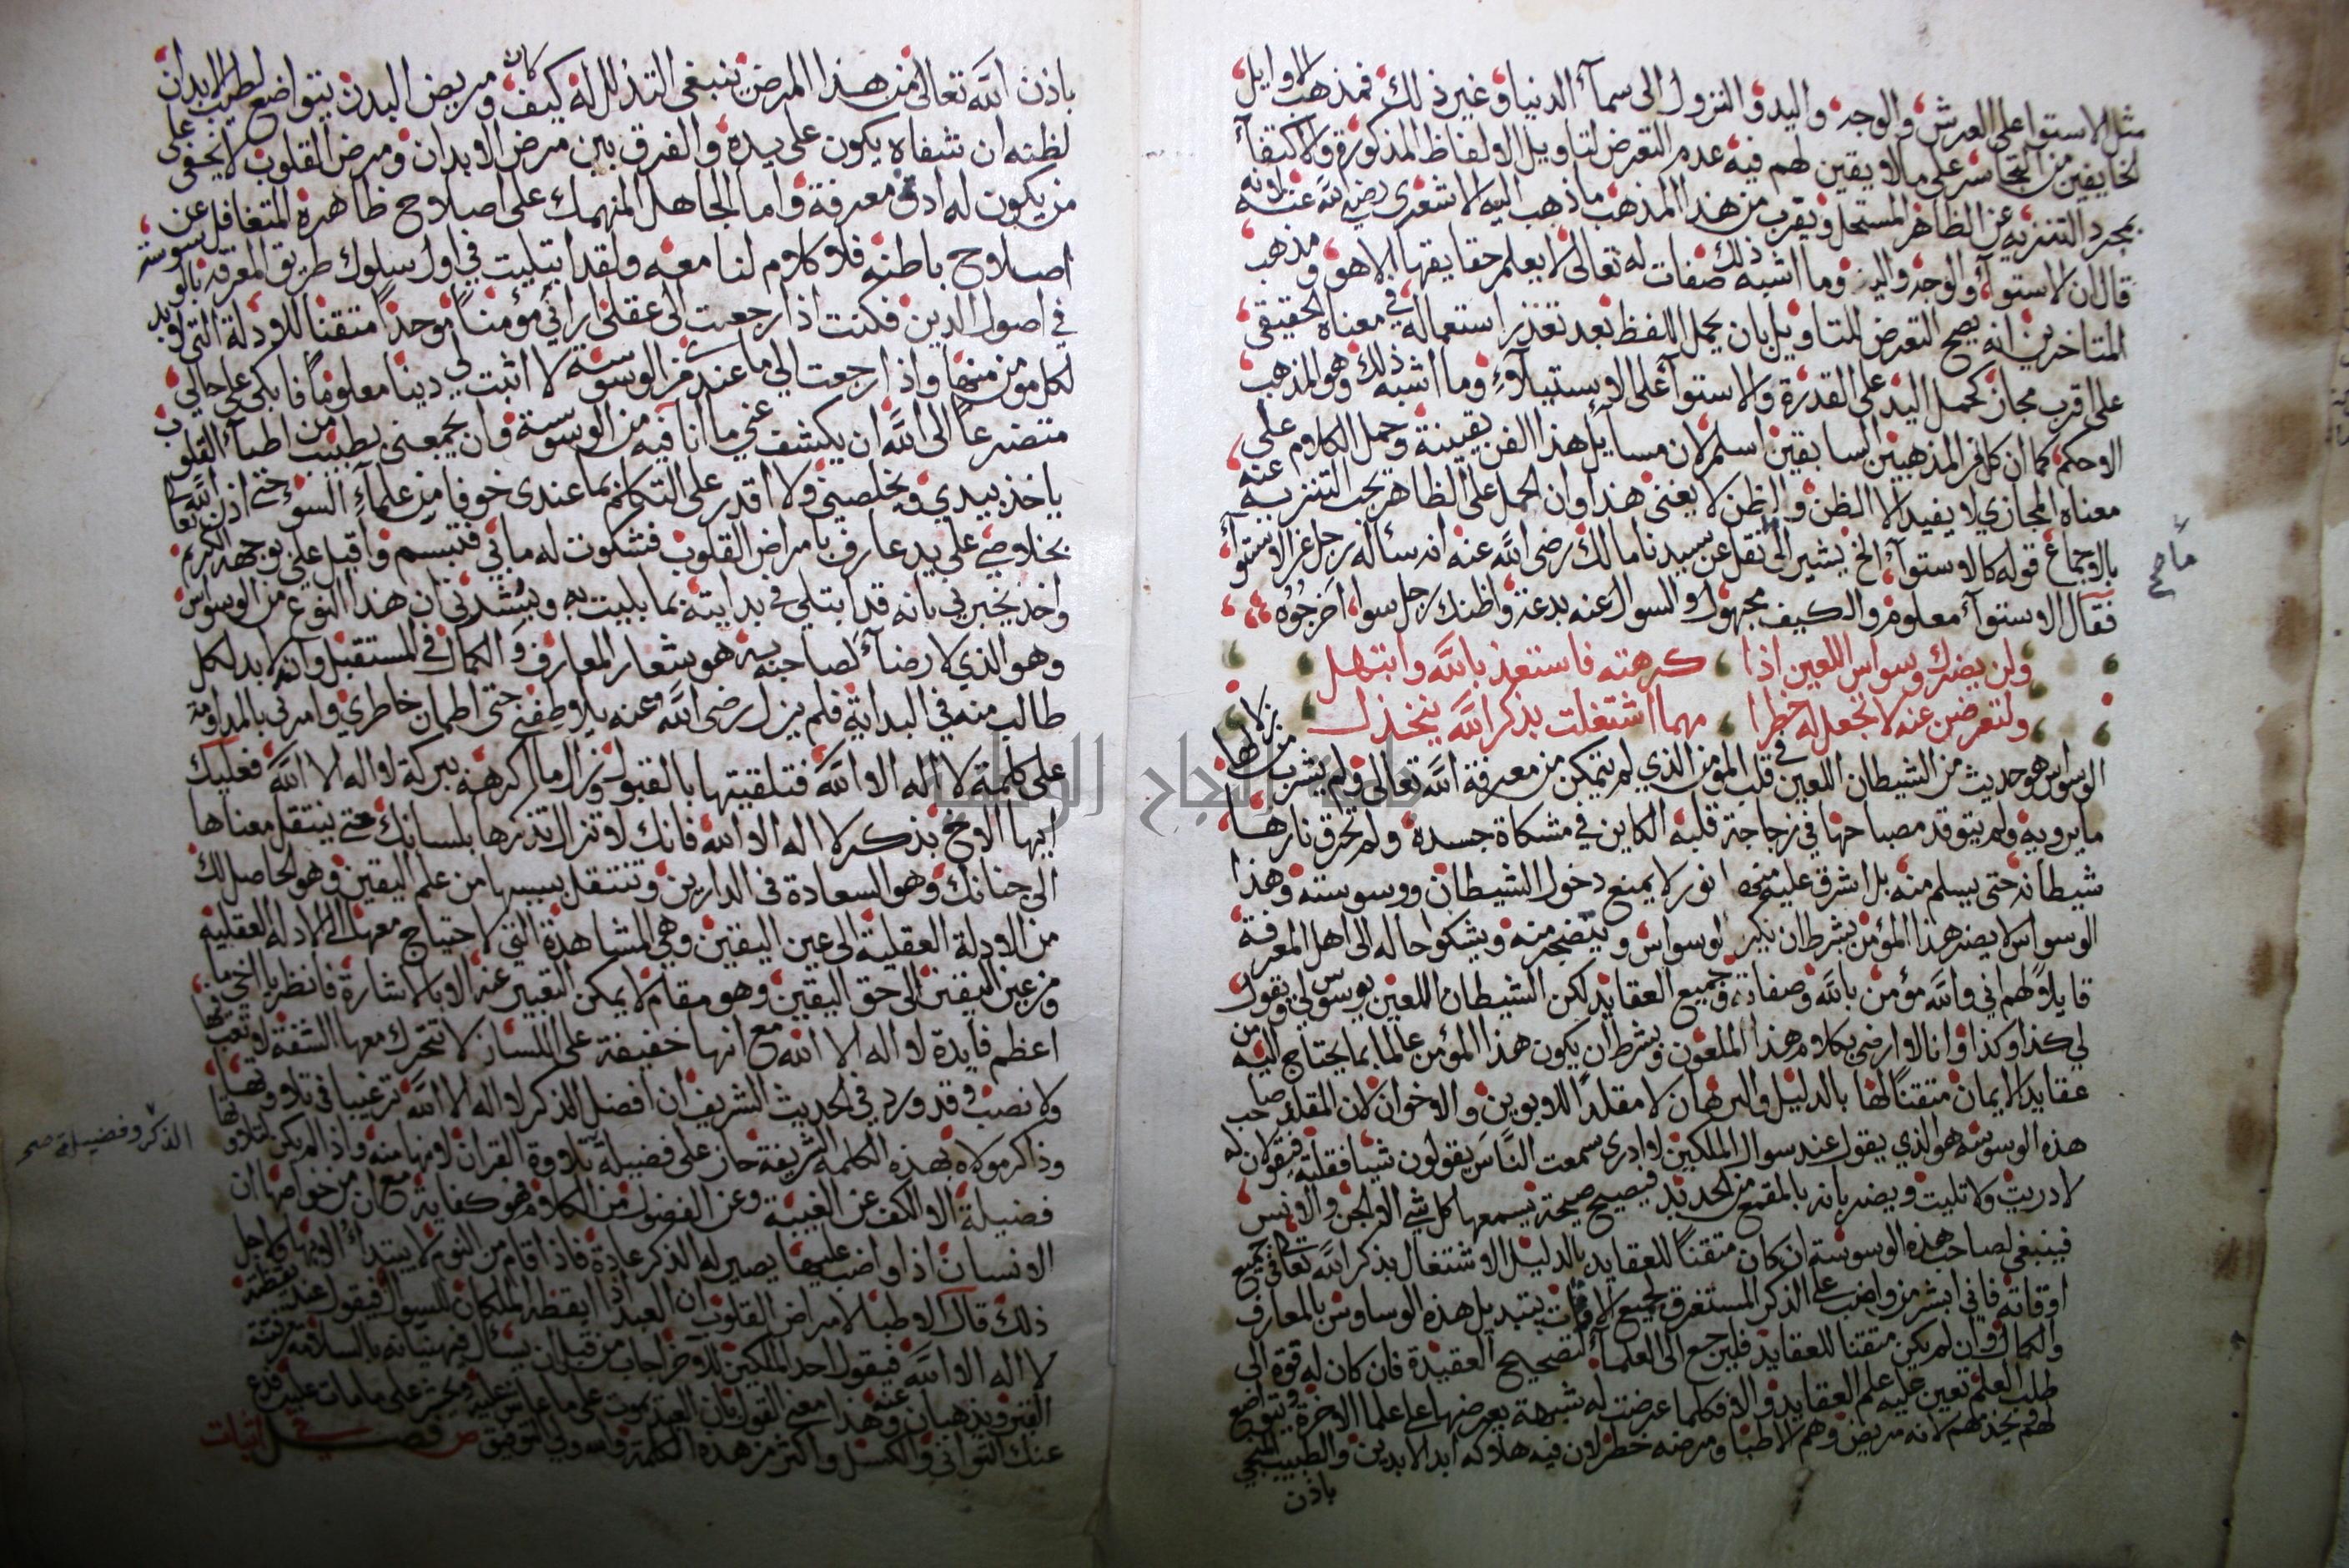 مثل الاستوا على العرش والوجه واليد والنزول الى سمآء الدنيا وغير ذلك فمذهب الاوايل
الخايفين من التجاسر على ما لا ويقين لهم فيه عدم التعرض لتاويل الالفاظ المذكورة والاكتفآء
بمجرد التنزيه عن الظاهر المستحل ويقرب من هذا المذهب ما ذهب اليه الاشعرى رضي الله عنه لانه
قال ان الاستوآء والوجه واليد وما اشبه ذلك صفات له تعالى لا يعلم حقايقها الا هو ومذهب
المتاخرين انه يصح التعرض للتاويل بان يحمل اللفظ بعد تعذر استعماله في معناه الحقيقي
على اقرب مجاز كحمل اليد على القدرة والاستوآء على الاستيلآء وما اشبه ذلك وهو المذهب
الاحكم كما ان كل من المذهبين السابقين اسلم لان مسايل هذا الفن يقينية وحمل الكلام على
معناه المجازي لا يفيد الا الظن والظن لا يغنى هذا وان الحمل على الظاهر يجب التنزيه عنه
بالاجماع قوله كالاستوآء الخ يشير الى ما نقل عن سيدنا مالك رضى الله عنه انه سأله رجل عن الاستوآء
فقال الاستوآء معلوم والكيف مجهول والسوال عنه بدعة واظنك رجل سوا اخرجوه
ماصح
ولن يضرك وسواس اللعين اذا كرهته فاستعذ بالله وابتهل
ولتعرضن عنه لا تجعل له خطرا مهما اشتغلت بذكر الله ينخذل
الوسواس هو حديث من الشيطان اللعين في قلب المومن الذي لم يتمكن من معرفة الله تعالى ولم يشرب من زلالها
ما يرويه ولم يتوقد مصباحها في زجاجة قلبه الكاين في مشكاة جسده ولم تحرق نارها
شيطانه حتى يسلم منه بل اشرق عليه منها نور لا يمنع دخول الشيطان ووسوسته وهذا
الوسواس لا يضر هذا المؤمن بشرط ان يكره الوسواس ويتضجر منه ويشكوا حاله الى اهل المعرفة
قايلا لهم اني والله مؤمن بالله وصفاته وجميع العقايد لكن الشيطان اللعين يوسوس لي ويقول
لي كذا وكذا وانا لا ارضى بكلام هذا الملعون وبشرط ان يكون هذا المؤمن عالما بما يحتاج اليه من
عقايد الايمان متقنا لها بالدليل والبرهان لا مقلدا للابوين والاخوان لان المقلد صاحب
هذه الوسوسة هو الذي يقول عند سوال الملكين لا ادرى سمعت الناس يقولون شيا فقلته فيقولان له
لا دريت ولا تليت ويضربانه بالمقمع من الحديد فيصيح صيحة يسمعها كل شي الا الجن والانس
فينبغى لصاحب هذه الوسوسة ان كان متقنا للعقايد بالدليل الاشتغال بذكر الله تعالى في جميع
اوقاته فاني ابشر من واضب على الذكر المستغرق لجميع الاوقات بتبديل هذه الوساوس بالمعارف
والكمال وان لم يكن متقنا للعقايد فليرجع الى العلمآء لتصحيح العقيدة فان كان له قوة الى
طلب العلم تعين عليه علم العقايد والا فكلما عرضت له شبهة يعرضها على علما الاخرة ويتواضع
لهم ويخدمهم لانه مريض وهم الاطبا ومرضه خطر لان فيه هلاكه ابد الابدين والطبيب المنجي
باذن
باذن الله تعالى من هذا المرض ينبغى التذلل له كيف وكان مريض البدن يتواضع لطبيب الابدان
لظنه ان شفاه يكون على يده والفرق بين مرض الابدان ومرض القلوب لا يخفى على
من يكون له ادنى معرفة واما الجاهل المنهمك على اصلاح ظاهره المتغافل عن
اصلاح باطنه فلا كلام لنا معه ولقد ابتليت في اول سلوك طريق المعرفة بالوسوسة
في اصول الدين فكنت اذا رجعت الى عقلى ارانى مؤمنا موحدا متقنا للادلة التي لا بد
لكل مومن منها واذا رجعت الي ما عندى من الوسوسة لا اثبت لي دينا معلوما فابكى على حالي
متضرعا الى الله ان يكشف عني ما انا فيه من الوسوسة وان يجمعنى بطبيب من اطبآء القلوب
ياخذ بيدي ويخلصني ولا اقدر على التكلم بما عندى خوفا من علمآء السوء حتى اذن الله تعا
بخلاصي على يد عارف بامراض القلوب فشكوت له ما بي فتبسم واقبل علي بوجهه الكريم
واخذ يخبرني بانه قد ابتلى في بدايته بما بليت به ويشدني ان هذا النوع من الوسواس
وهو الذي لا رضآء لصاحبه به هو شعار المعارف والكمال في المستقبل وانه لا بد لكل
طالب منه في البداية فلم يزل رضى الله عنه يلاطفني حتى اطمان خاطري وامرني بالمداومة
على كلمة لا اله الا الله فتلقيتها بالقبول وزال ما اكرهه ببركة لا اله الا الله فعليك
ايها الاخ بذكر لا اله الا الله فانك لا تزال تذكرها بلسانك حتى ينتقل معناها
الى جنانك وهو السعادة في الدارين وتنتقل بسببها من علم اليقين وهو الحاصل لك
من الادلة العقلية الى عين اليقين وهي المشاهدة التي لا احتياج معها الى الادله العقلية
ومن عين اليقين الى حق اليقين وهو مقام لا يمكن التعبير عنه الا بالاشارة فانظر يا اخي ما
اعظم فايدة لا اله الا الله مع انها خفيفة على اللسان لا تتحرك معها الشفة لا تعب فيها
ولا نصب وقد ورد في الحديث الشريف ان افضل الذكر لا اله الا الله ترغيبا في تلاوتها
وذاكر مولاه بهذه الكلمة الشريفة حاز على فضيلة تلاوة القران لانها منه واذا لم يكن لتلاوتها
الذكر وفضيلة صح
فضيلة الا الكف عن الغيبة وعن الفضول من الكلام فهو كفاية مع ان من خواصها ان
الانسان اذا واضب عليها يصير له الذكر عادة فاذا قام من النوم لا يبتدأ الا بها ولاجل
ذلك قال الاطبا لامراض القلوب ان العبد اذا ايقظه الملكان للسوال فيقول عند يقظته
لا اله الا الله فيقول احد الملكين للاخر اجاب من قبل ان يسأل فيهنيانه بالسلامة من فتنة
القبر ويذهبان عنه وهذا معنى القول بان العبد يموت على ما عاش عليه ويحشر على ما مات عليه فدع
عنك التواني والكسل واكثر من هذه الكلمة والله ولي التوفيق ص فصل في اثبات